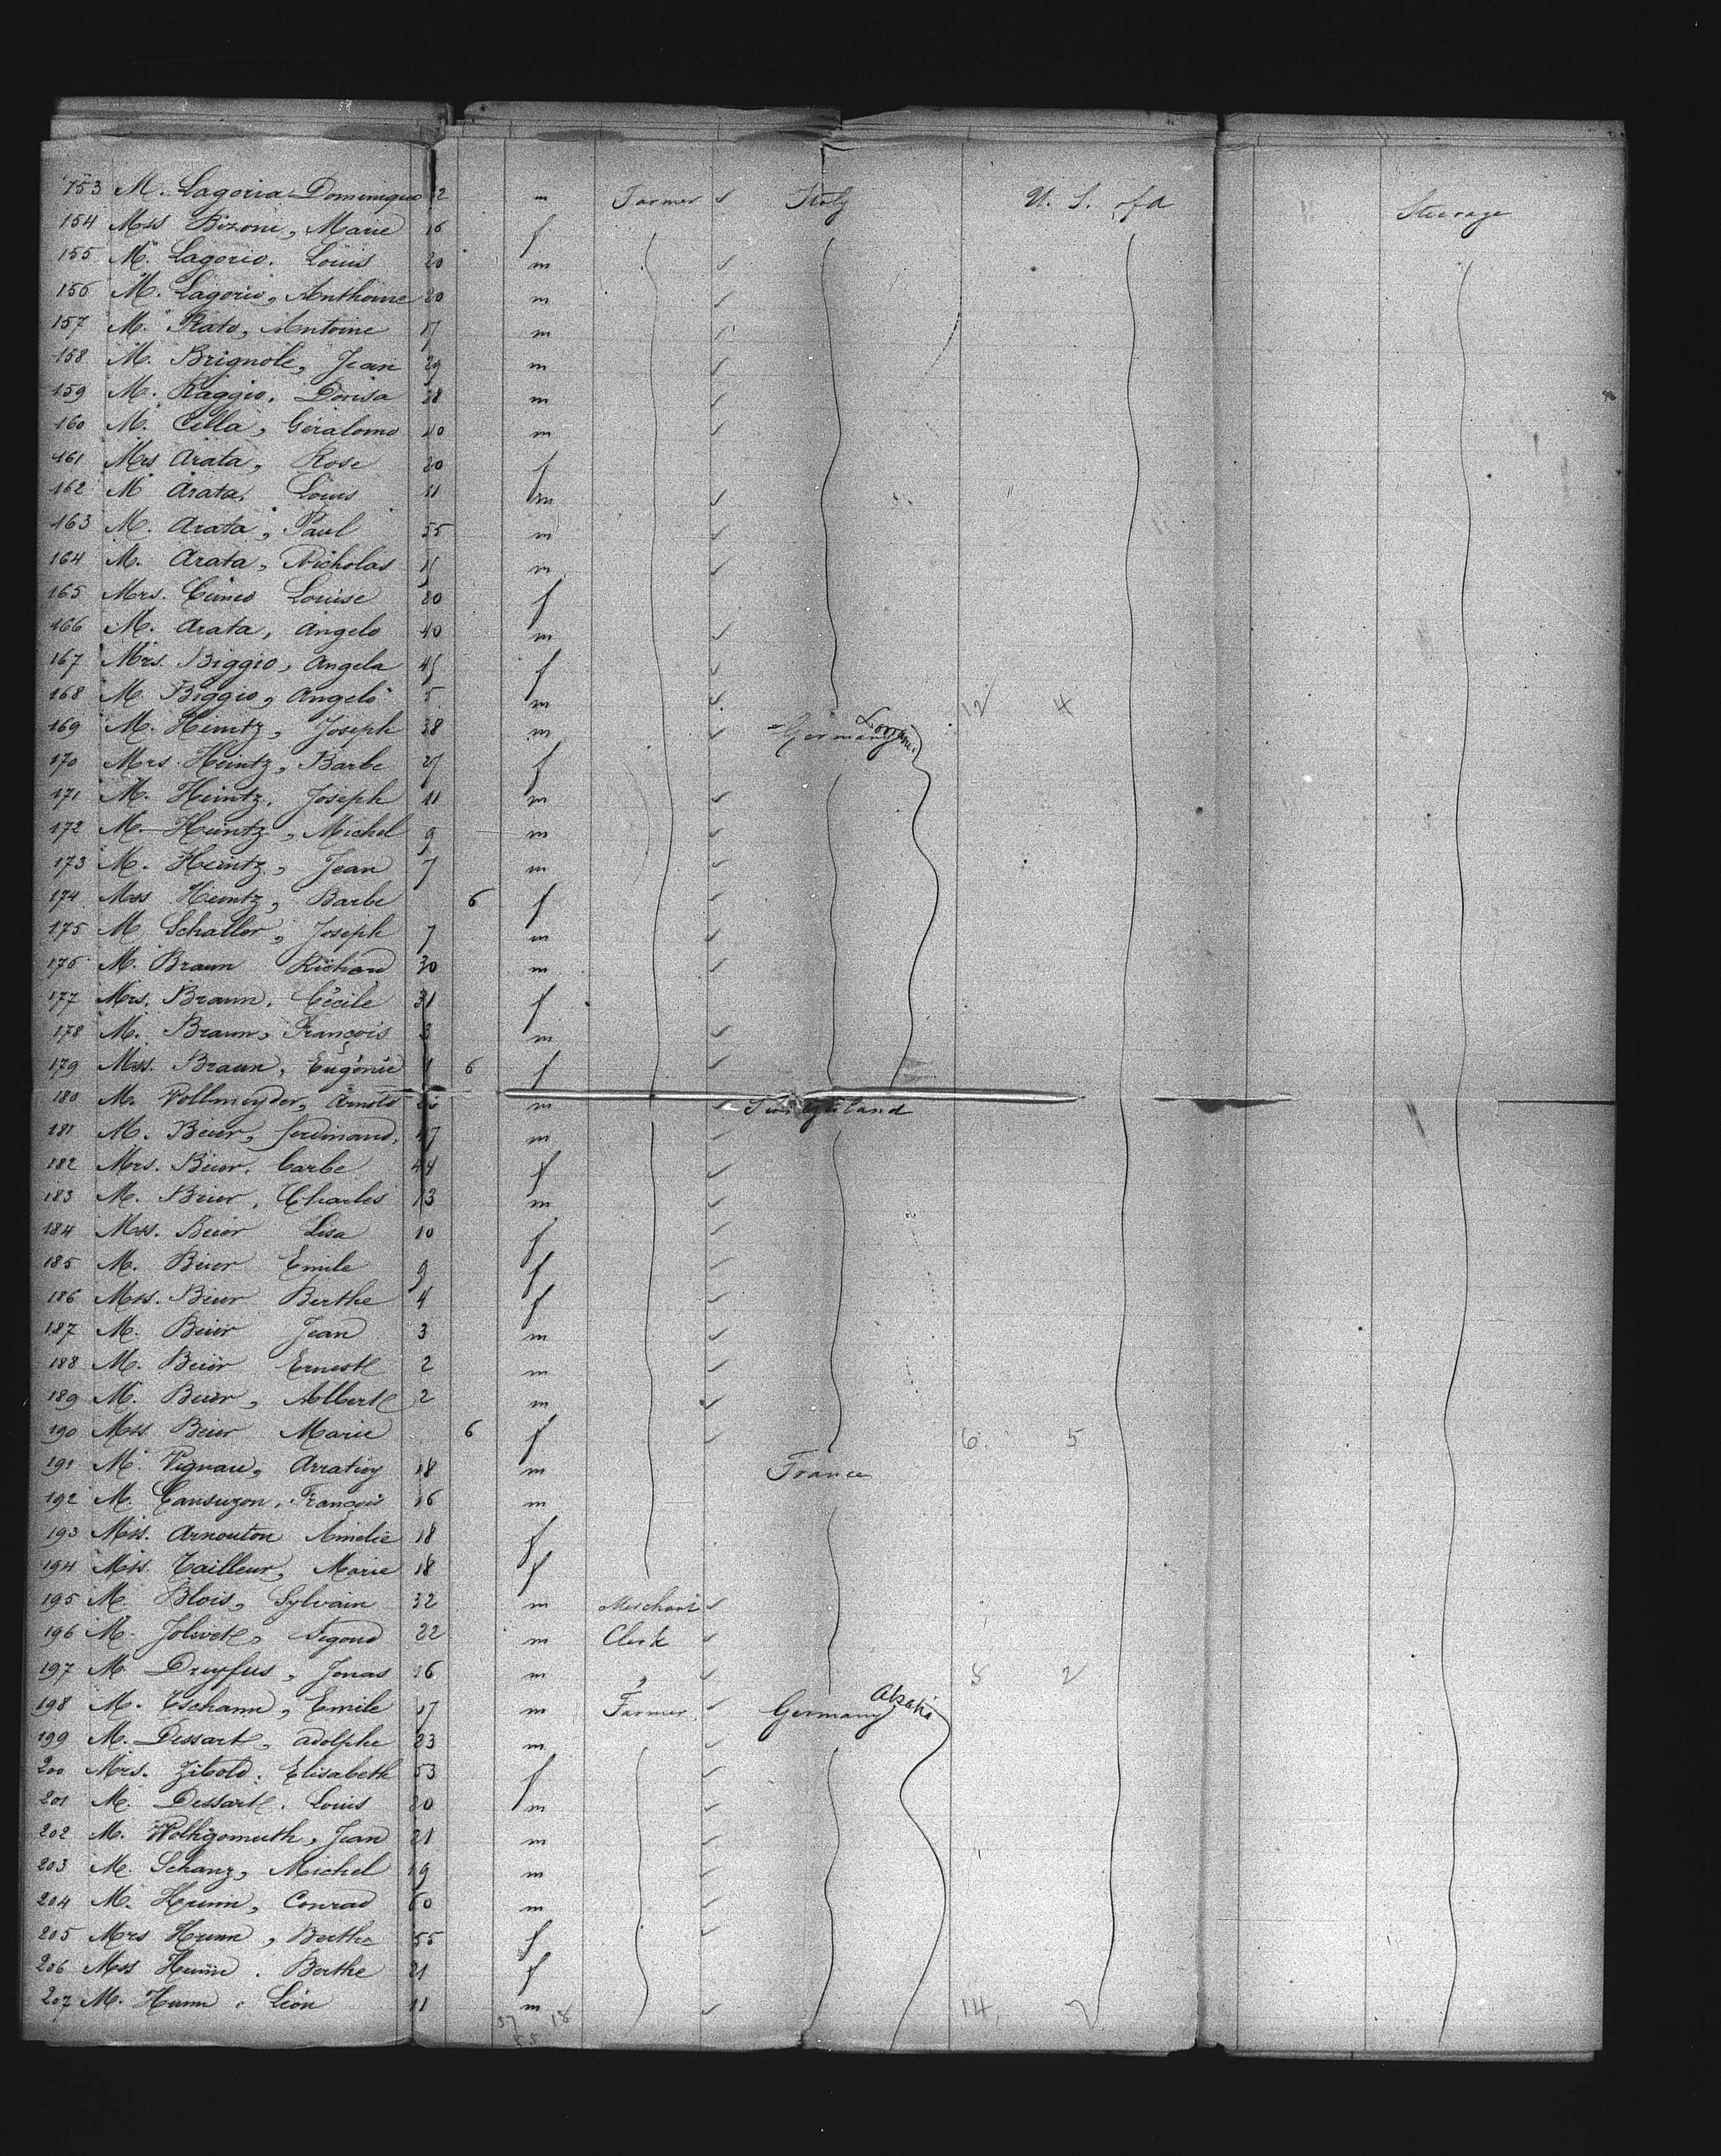 153 M. Lagoria Dominique 2 m Farmer ✓ Italy U. S. of A Steerage
154 Mss Bizoni, Marie 16 f
155 M. Lagorio. Louis 20 m ✓
156 M. Lagorio, Anthoine 20 m ✓
157 M. Prato, Antoine 17 m ✓
158 M. Brignole, Jean 29 m ✓
159 M. Raggio. Dorisa 28 m ✓
160 M. Cella, Géralomo 40 m ✓
161 Mrs Arata, Rose 20 f
162 M Arata, Louis 11 m ✓
163 M. Arata, Paul 55 m ✓
164 M. Arata, Nicholas m ✓
165 Mrs. Cuneo Louise 20 f
166 M. Arata, Angelo 40 m ✓
167 Mrs. Biggio, Angela 45 f ✓
168 M Biggio, Angelo 5 m ✓ 12 4
169 M. Heintz, Joseph 38 m ✓ Germany Lorraine
170 Mrs. Heintz, Barbe 27 f
171 M. Heintz, Joseph 11 m ✓
172 M. Heintz, Michel 9 m ✓
173 M. Heintz, Jean 7 m ✓
174 Mss Heintz, Barbe 6 f ✓
175 M Schaller, Joseph 7 m ✓
176 M. Braun Richard 30 m ✓
177 Mrs. Braun. Cécile 31 f
178 M. Braun, François 3 m ✓
179 Mss. Braun, Eugénie 6 f ✓
180 M. Vollmeyder, Arnold m ✓ Switzerland
181 M. Beior, ferdinand, 47 m ✓
182 Mrs. Beior. barbe 44 f ✓
183 M. Beior, Charles 13 m ✓
184 Mss. Beior Lisa 10 f ✓
185 M. Beior Emile 9 f ✓
186 Mss. Beior Berthe 4 f ✓
187 M. Beior Jean 3 m ✓
188 M. Beior Ernest 2 m ✓
189 M. Beior, Albert 2 m ✓
190 Mss Beior Marie 6 f ✓ 6 5
191 M. Vignau, 18 m France
192 M. François 16 m
193 Mss. Arnouton Amélie 18 f
194 Mss. Tailleur, Marie 18 f
195 M. Blois, Sylvain 32 m Merchant ✓
196 M. Jolivet, Segond 22 m Clerk ✓
197 M. Dreyfus, Jonas 16 m " ✓ 5 2
198 M. Tschann, Emile 17 m Farmer ✓ Germany Alsatia
199 M. Dessart, Adolphe 23 m ✓
200 Mrs. Zibold. Elisabeth 53 f ✓
201 M. Dessart. Louis 20 m ✓
202 M. Wolhgomuth, Jean 21 m ✓
203 M. Schanz, Michel 19 m ✓
204 M. Humm, Conrad 60 m ✓
205 Mrs Humm, Berthe 55 f ✓
206 Mss Humm. Berthe 21 f
207 M. Humm. Léon 11 m ✓ 14 2
37 18
55